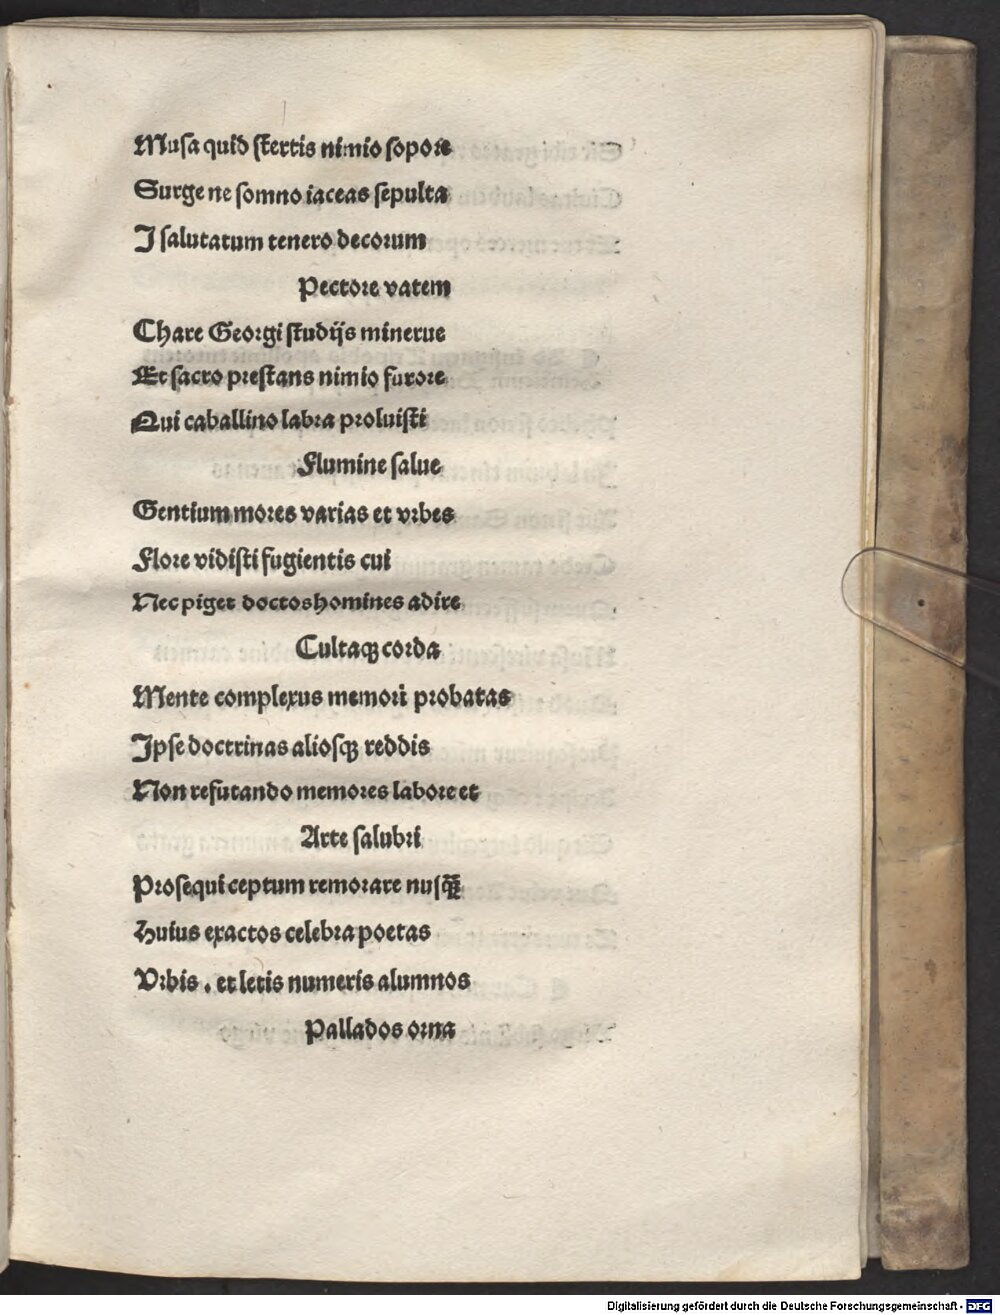 Musa quid stertis nimio sopore
Surge ne somno iaceas sepulta
I salutatum tenero decorum
Pectore vatem
Chare Georgi studijs minerue
Et sacro prestans nimio furore
Qui caballino labra proluisti
Flumine salue
Gentium mores varias et vrbes
Flore vidisti fugientis cui
Nec piget doctos homines adire
Cultaqꝫ corda
Mente complexus memori probatas
Ipse doctrinas aliosqꝫ reddis
Non refutando memores labore et
Arte salubri
Prosequi ceptum remorare nusq̄ꝫ
Huius exactos celebra poetas
Vrbis . et letis numeris alumnos
Pallados orna
Digitalisierung gefördert durch die Deutsche Forschungsgemeinschaft - DFG